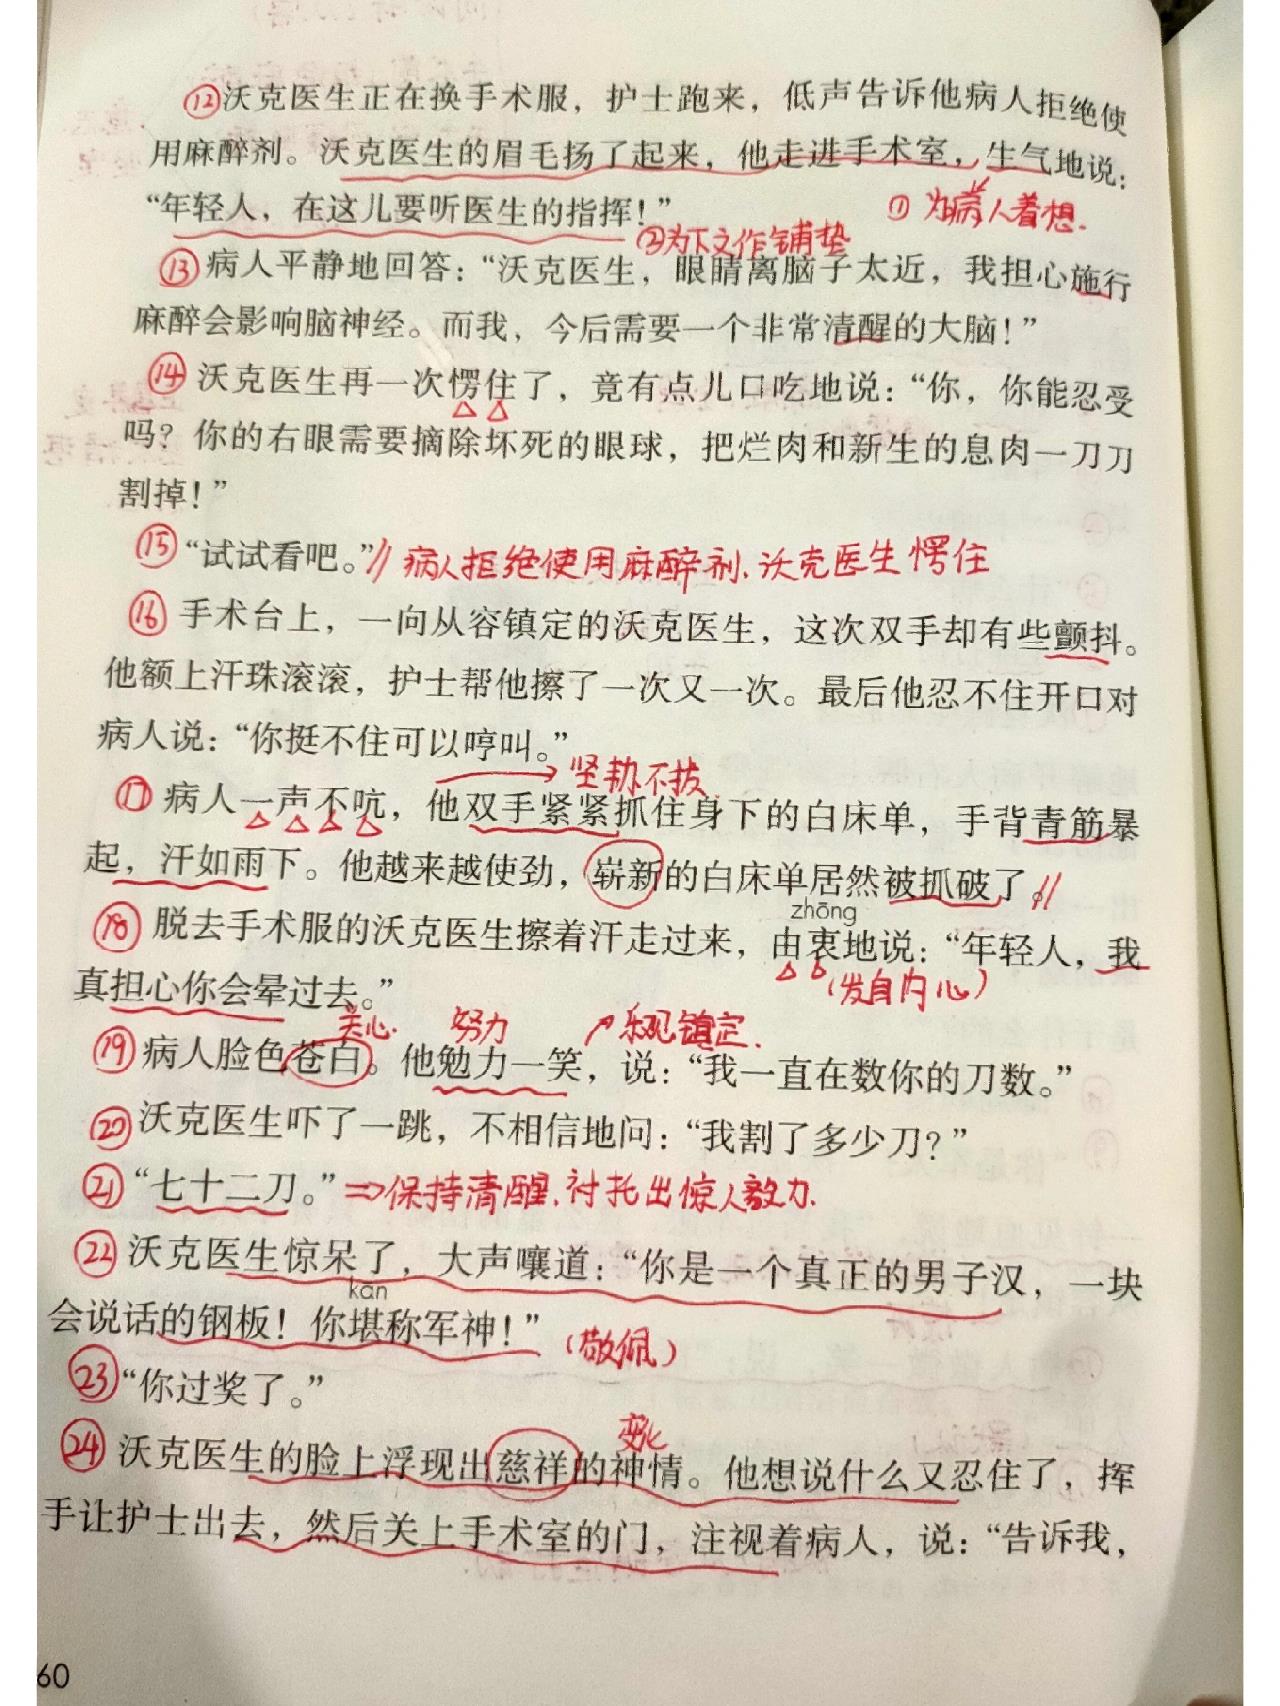 ⑫沃克医生正在换手术服，护士跑来，低声告诉他病人拒绝使
用麻醉剂。沃克医生的眉毛扬了起来，他走进手术室，生气地说：
“年轻人，在这儿要听医生的指挥！”
①为病人着想.
②为下文作铺垫
⑬病人平静地回答：“沃克医生，眼睛离脑子太近，我担心施行
麻醉会影响脑神经。而我，今后需要一个非常清醒的大脑！”
⑭沃克医生再一次愣住了，竟有点儿口吃地说：“你，你能忍受
吗？你的右眼需要摘除坏死的眼球，把烂肉和新生的息肉一刀刀
割掉！”
⑮“试试看吧。”// 病人拒绝使用麻醉剂、沃克医生愣住
⑯手术台上，一向从容镇定的沃克医生，这次双手却有些颤抖。
他额上汗珠滚滚，护士帮他擦了一次又一次。最后他忍不住开口对
病人说：“你挺不住可以哼叫。”
→坚韧不拔
⑰病人一声不吭，他双手紧紧抓住身下的白床单，手背青筋暴
起，汗如雨下。他越来越使劲，崭新的白床单居然被抓破了。//
zhōng
⑱脱去手术服的沃克医生擦着汗走过来，由衷地说：“年轻人，我
真担心你会晕过去。”
（发自内心）
关心. 努力 ↗乐观镇定.
⑲病人脸色苍白。他勉力一笑，说：“我一直在数你的刀数。”
⑳沃克医生吓了一跳，不相信地问：“我割了多少刀？”
㉑“七十二刀。”⇒保持清醒、衬托出惊人毅力.
㉒沃克医生惊呆了，大声嚷道：“你是一个真正的男子汉，一块
kān
会说话的钢板！你堪称军神！”（敬佩）
㉓“你过奖了。”
变化
㉔沃克医生的脸上浮现出慈祥的神情。他想说什么又忍住了，挥
手让护士出去，然后关上手术室的门，注视着病人，说：“告诉我，
60